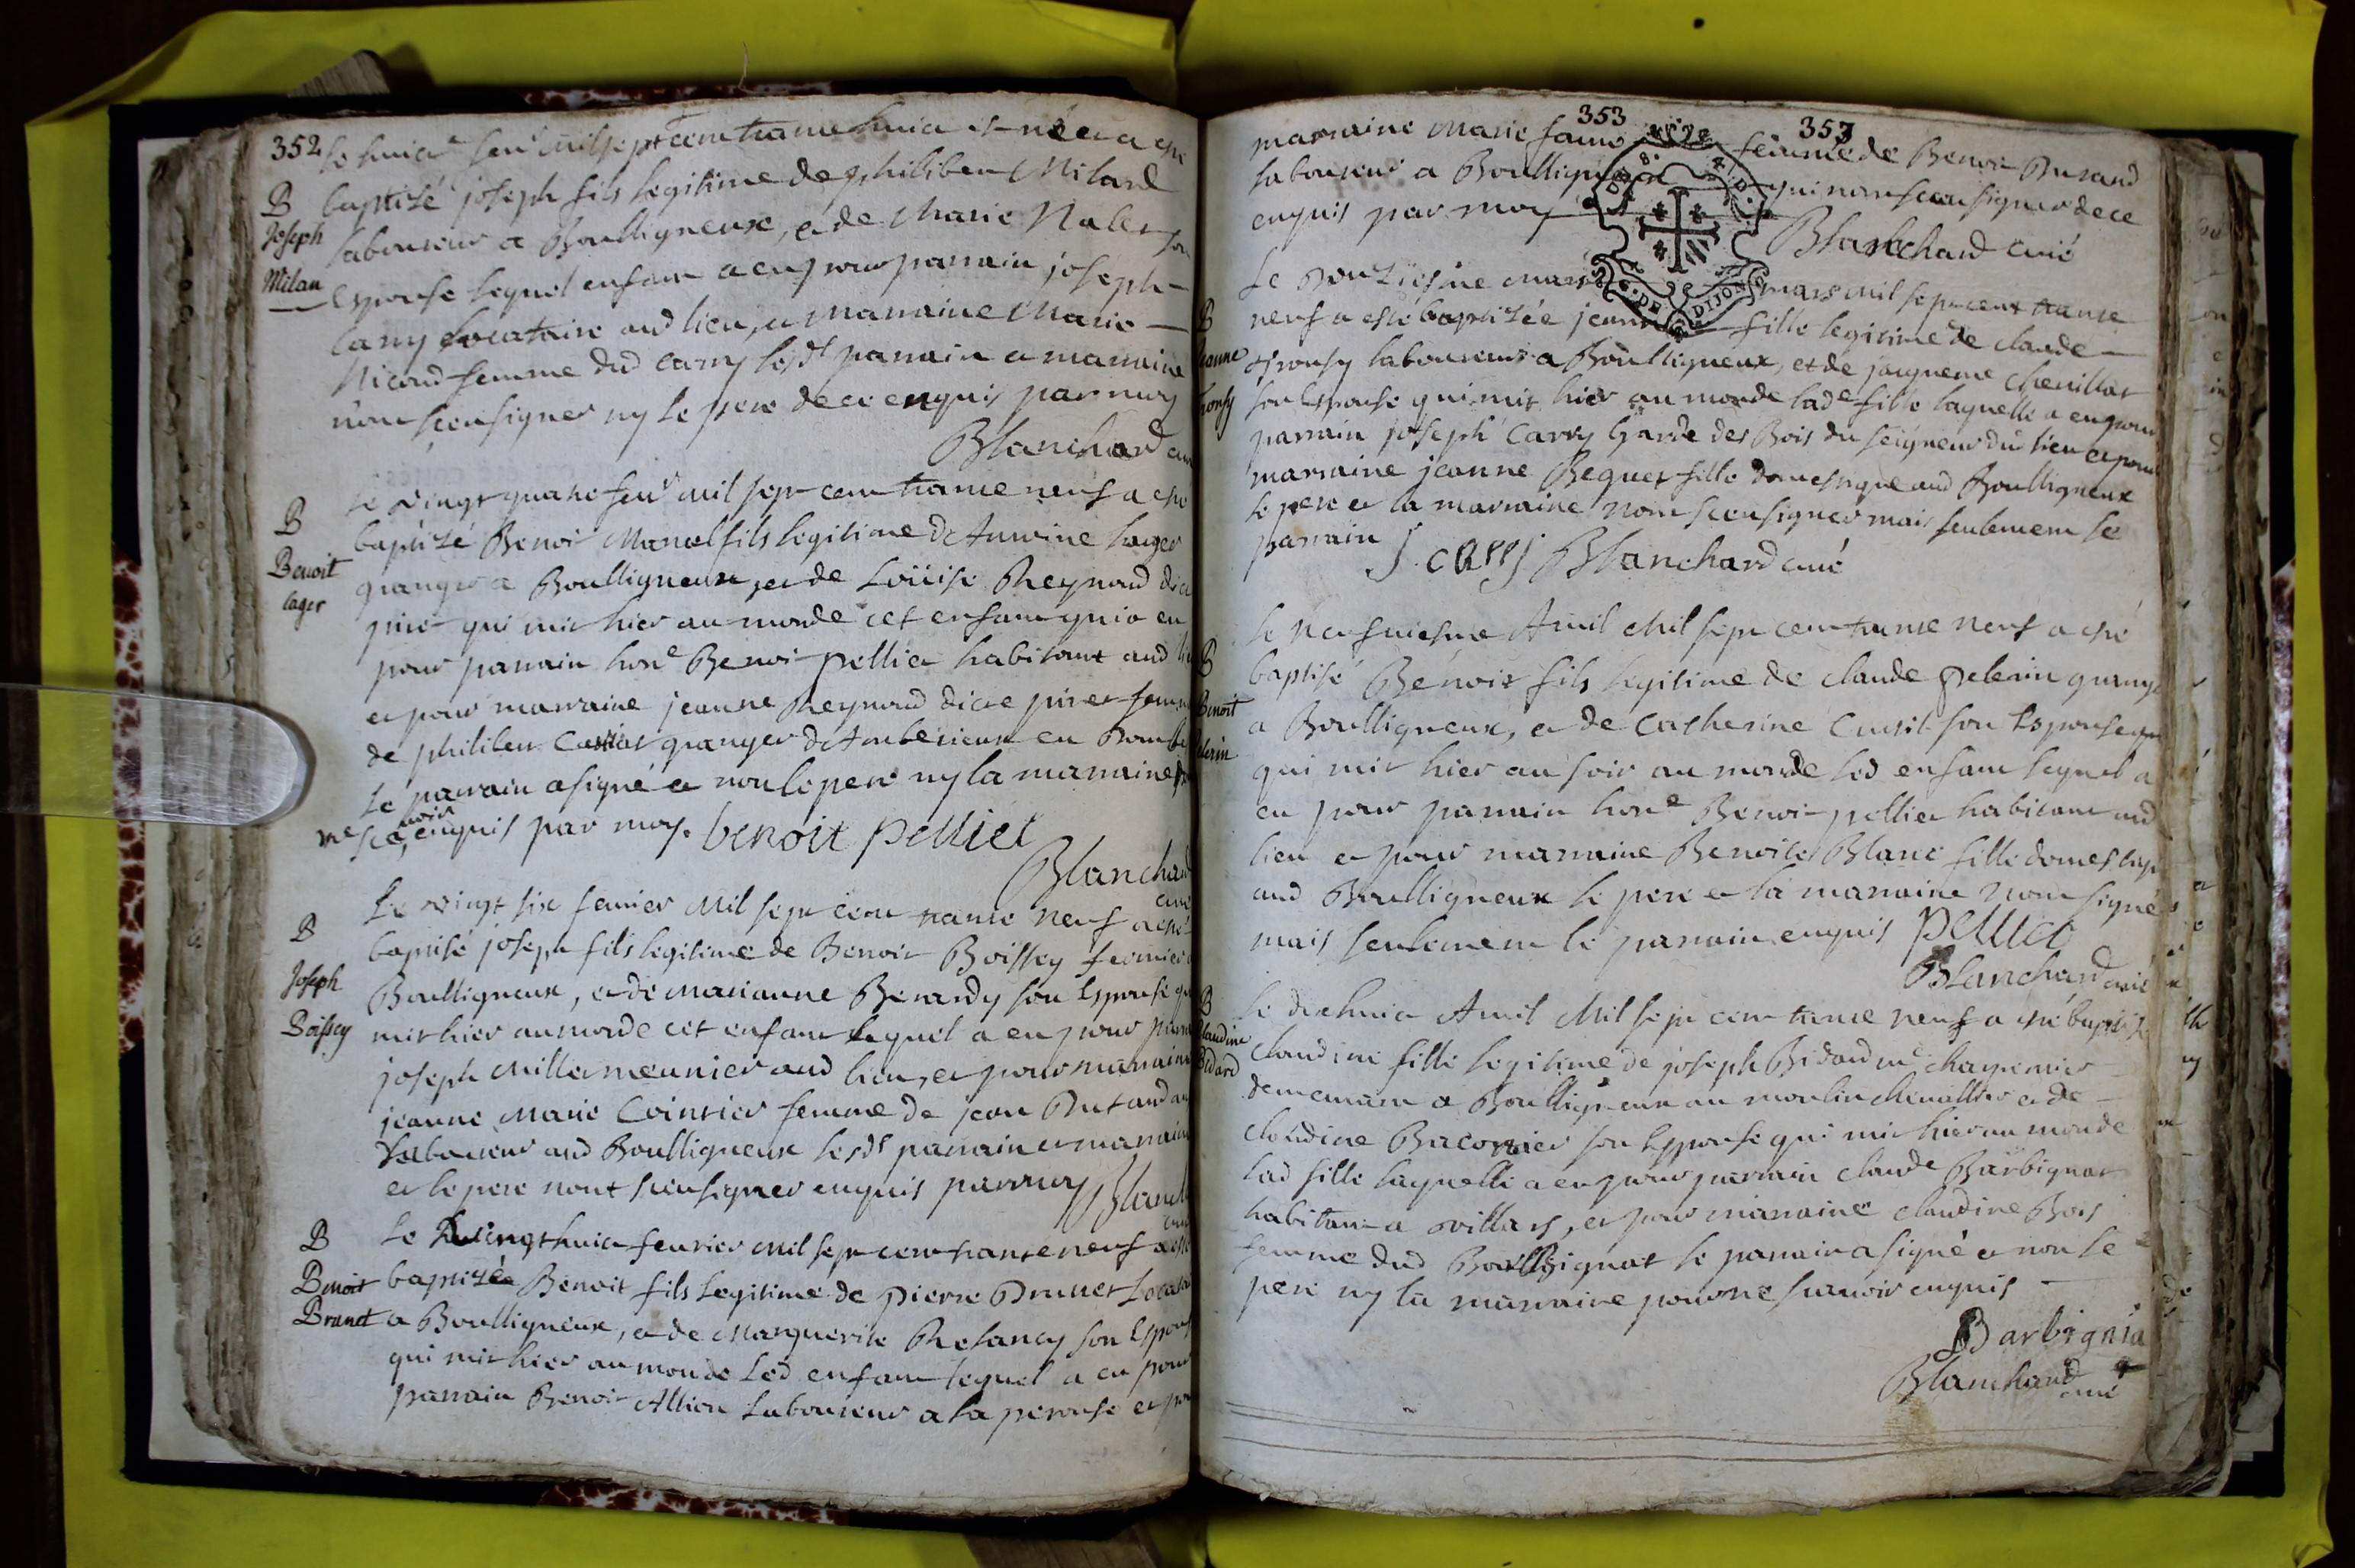 352
le huict feu mil sept cent trante huict est né et a esté
B baptisé joseph fils legitime de philibert Milard
Joseph laboureur a Boulligneux, et de Marie Nallet son
Milan Espouse lequel enfant a eu pour parrain joseph
Carry locataire aud lieu, et marraine Marie
Nicoud femme dud Carry lesdt parrain et marraine
n'ont sceu signer ny le pere de ce enquis par moy
Blanchard curé
le vingt quatre feur mil sept cent trante neuf a esté
B baptizé Benoit Marcel fils legitime de Antoine lager
Benoit granger a Boulligneux et de Loüise Reynaud dicte
lager piret qui mit hier au monde cet enfant qui a eu
pour parrain hone Benoit pelliet habitant aud lieu
et pour marraine jeanne Reynaud dicte piret femme
de philibert granger d'Amberieux en Dombe
le parrain a signé et non le pere ny la marraine pour
ne scavoir enquis par moy. benoit pelliet
Blanchard
curé
Le vingt six feurier mil sept cent trante neuf a esté
B baptisé joseph fils legitime de Benoit Boissey fermier a
Joseph Boulligneux, et de marianne Berardy son Espouse qui
Boissey mit hier au monde cet enfant lequel a eu pour parrain
joseph Millet meunier aud lieu, et pour marraine
jeanne Marie Cointier femme de jean Durand
laboureur aud Boulligneux lesdt parrain et marraine
et le pere n'ont sceu signer enquis par moy Blanchard
curé
B le vingt huict feurier mil sept cent trante neuf a esté
Benoit baptizée Benoit fils legitime de pierre Drunet Locataire
Brunet a Boulligneux, et de Marguerite Relancy son Espouse
qui mit hier au monde led enfant lequel a eu pour
parrain Benoit Allion laboureur a la perouse et pour
353 353
marraine Marie faure femme de Benoit Durand
laboureur a Boulligneux qui n'ont sceu signer de ce
enquis par moy
Blanchard curé
Le Douziesme mars mars mil sept cent trante
B neuf a esté baptizée jeanne fille legitime de claude
Jeanne laboureur a Boulligneux, et de jaqueme chevillat
son Espouse qui mit hier au monde lade fille laquelle a eu pour
parrain joseph Carry Garde des Bois du seigneur dud lieu et pour
marraine jeanne Bequet fille domestique aud Boulligneux
le pere et la marraine n'ont sceu signer mais seulement le
parrain J. cary Blanchard curé
le Neufuiesme Auril Mil sept cent trante neuf a esté
B baptisé Benoit fils legitime de claude pelerin granger
Benoit a Boulligneux, et de catherine Curtil son Espouse qui
pelerin qui mit hier au soir au monde led enfant lequel a
eu pour parrain hone Benoit pelliet habitant aud
lieu et pour marraine Benoite Blanc fille domestique
aud Boulligneux le pere et la marraine n'ont signé
mais seulement le parrain enquis Pelliet
Blanchard curé
B le dixhuict Auril Mil sept cent trante neuf a esté baptisée
Claudine claudine fille legitime de joseph Bidard me charpentier
Bidard demeurant a Boulligneux au moulin chevallier et de
claudine Baconnier son Espouse qui mit hier au monde
lad fille laquelle a eu pour parrain claude Barbignat
habitant a villars, et pour marraine claudine Bois
femme dud Barbignat le parrain a signé et non le
pere ny la marraine pour ne scavoir enquis
Barbignia
Blanchard
curé
DIJON